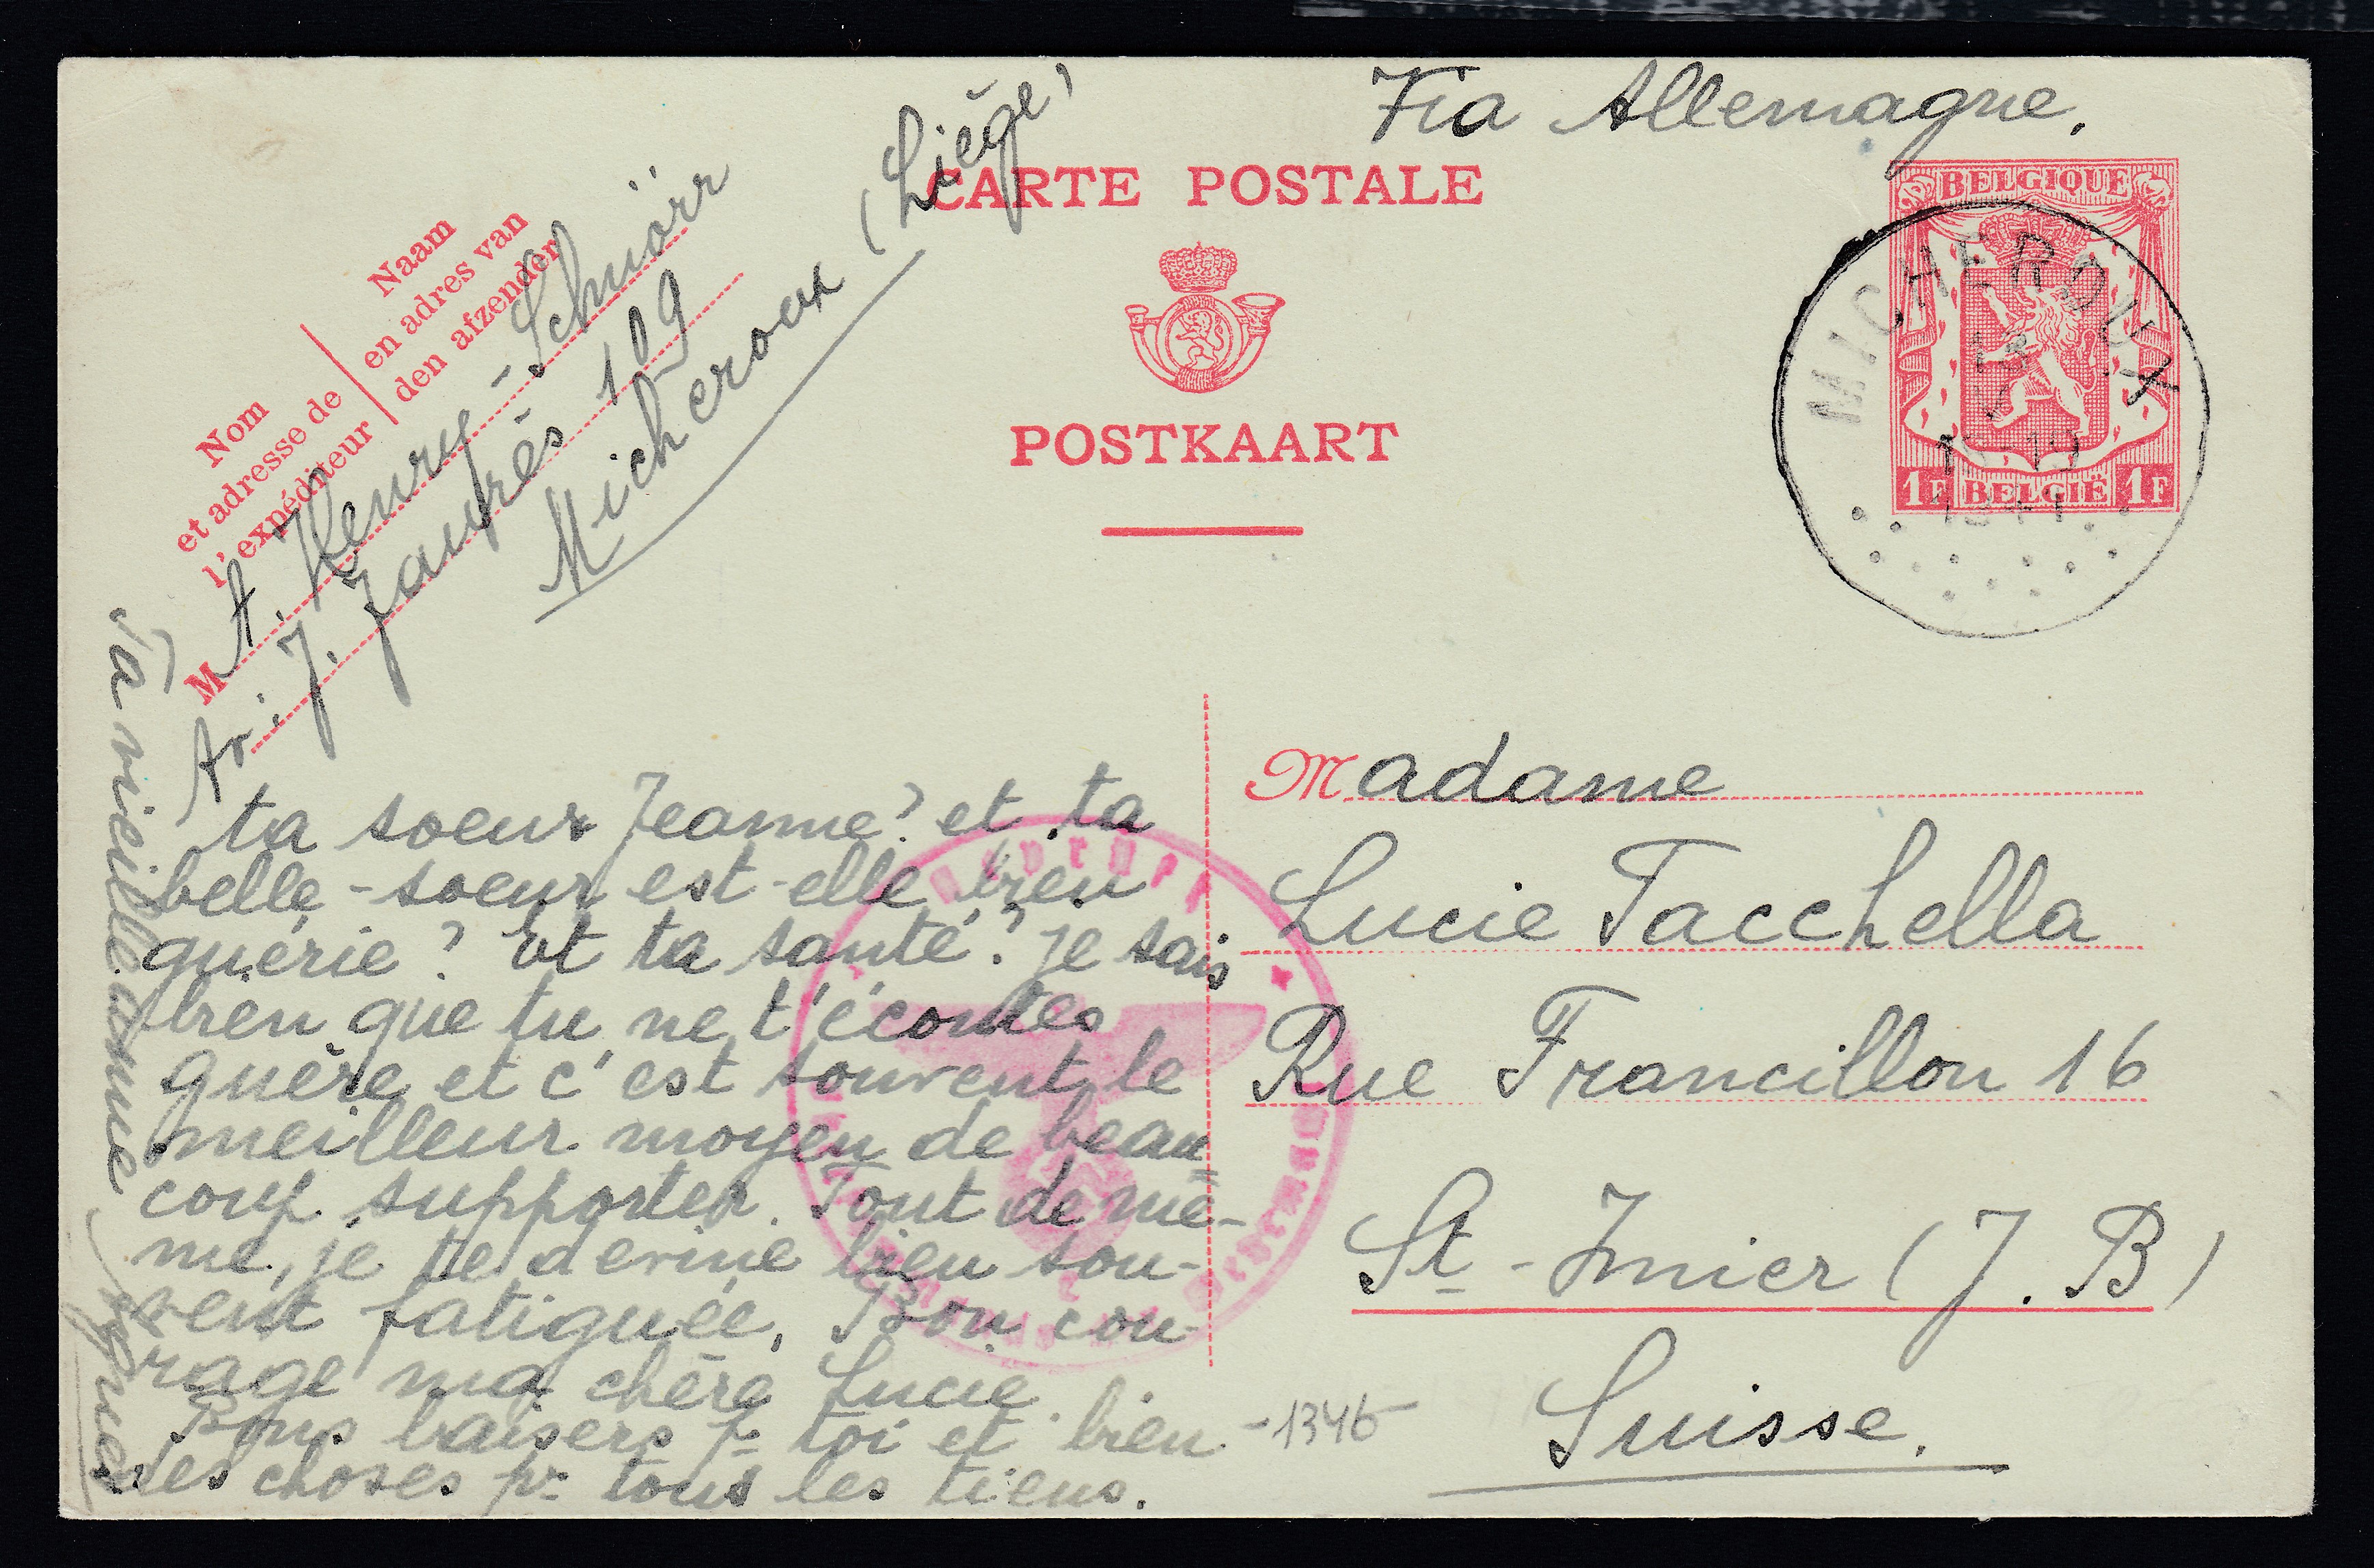 Via Allemagne.
CARTE POSTALE
POSTKAART
BELGIQUE
1F BELGIË 1F
MICHEROUX
13
V
1941
Nom
et adresse de
l'expéditeur
Naam
en adres van
den afzender
M A. Henry-Schnörr
Av: J. Jaurès 109
Micheroux (Liège)
ta soeur Jeanne? et ta
belle-soeur est-elle bien
guérie? Et ta santé? Je sais
bien que tu ne t'écoutes
guère et c'est souvent le
meilleur moyen de beau=
coup supporter. Tout de mê-
me, je te devine bien sou-
vent fatiguée. Bon cou-
rage ma chère Lucie.
Bons baisers pr toi et bien
des choses pr tous les tiens.
Ta vieille amie, Agnes
Madame
Lucie Tacchella
Rue Francillon 16
St-Imier (J. B)
Suisse.
-1346-
Geprüft
Oberkommando der Wehrmacht